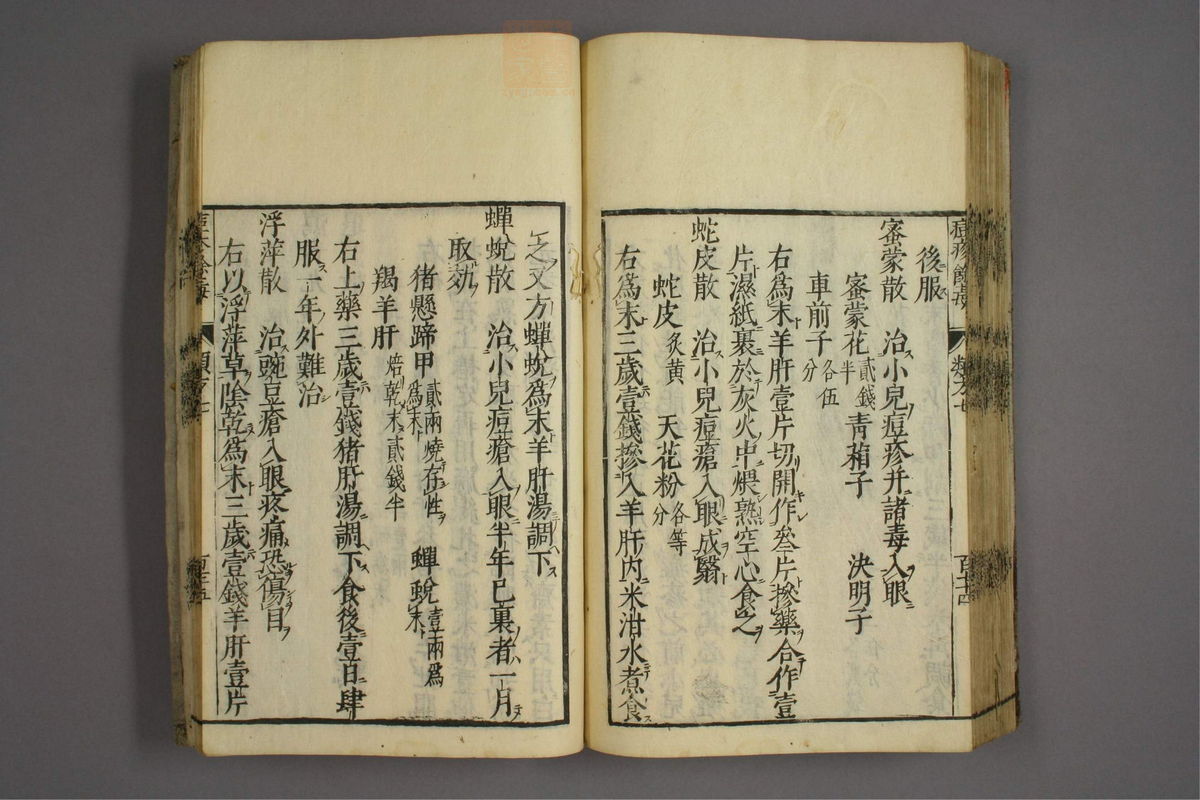 後服
密蒙散　治小兒痘疹并諸毒入眼
密蒙花貳錢半　青葙子　決明子
車前子各伍分
右爲末羊肝壹片切開作叄片摻藥合作壹
片濕紙裹於灰火中煨熟空心食之
蛇皮散　治小兒痘瘡入眼成翳
蛇皮炙黄　天花粉各等分
右爲末三歲壹錢摻入羊肝内米泔水煮食
之又方蟬蛻爲末羊肝湯調下
蟬蛻散　治小兒痘瘡入眼半年已裏者一月
取効
猪懸蹄甲貳兩燒存性爲末　蟬蛻壹兩爲末
羯羊肝焙乾末貳錢半
右上藥三歲壹錢猪肝湯調下食後壹日肆
服一年外難治
浮萍散　治豌豆瘡入眼疼痛恐傷目
右以浮萍草陰乾爲末三歲壹錢羊肝壹片